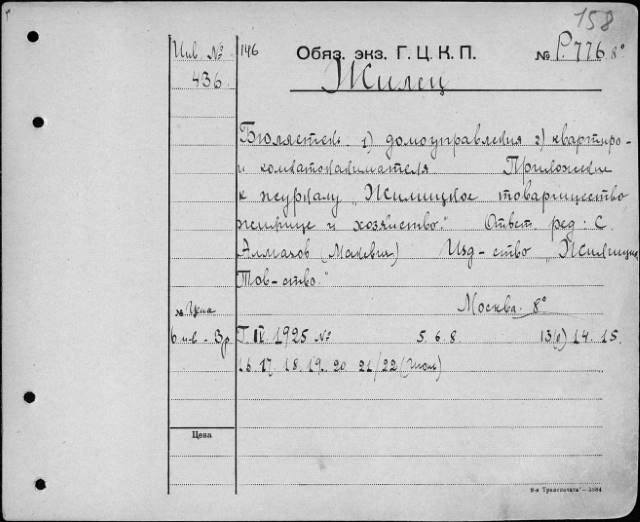 158
Инв. №
436.
146
Обяз. экз. Г. Ц. К. П.
№ Р.776 8°
Жилец
Бюллетень 1) домоуправления 2) квартиро-
и комнатонанимателя Приложение
к журналу „Жилищное товарищество
жилище и хозяйство." Ответ. ред: С.
Алмазов Изд-ство „Жилищн.
Тов-ство."
Москва. 8°
№ Цена
6 м-в - 3р.
Г. IV. 1925 № 5. 6. 8. 13(0) 14. 15.
16. 17. 18. 19. 20. 21/22 (Июль)
Цена